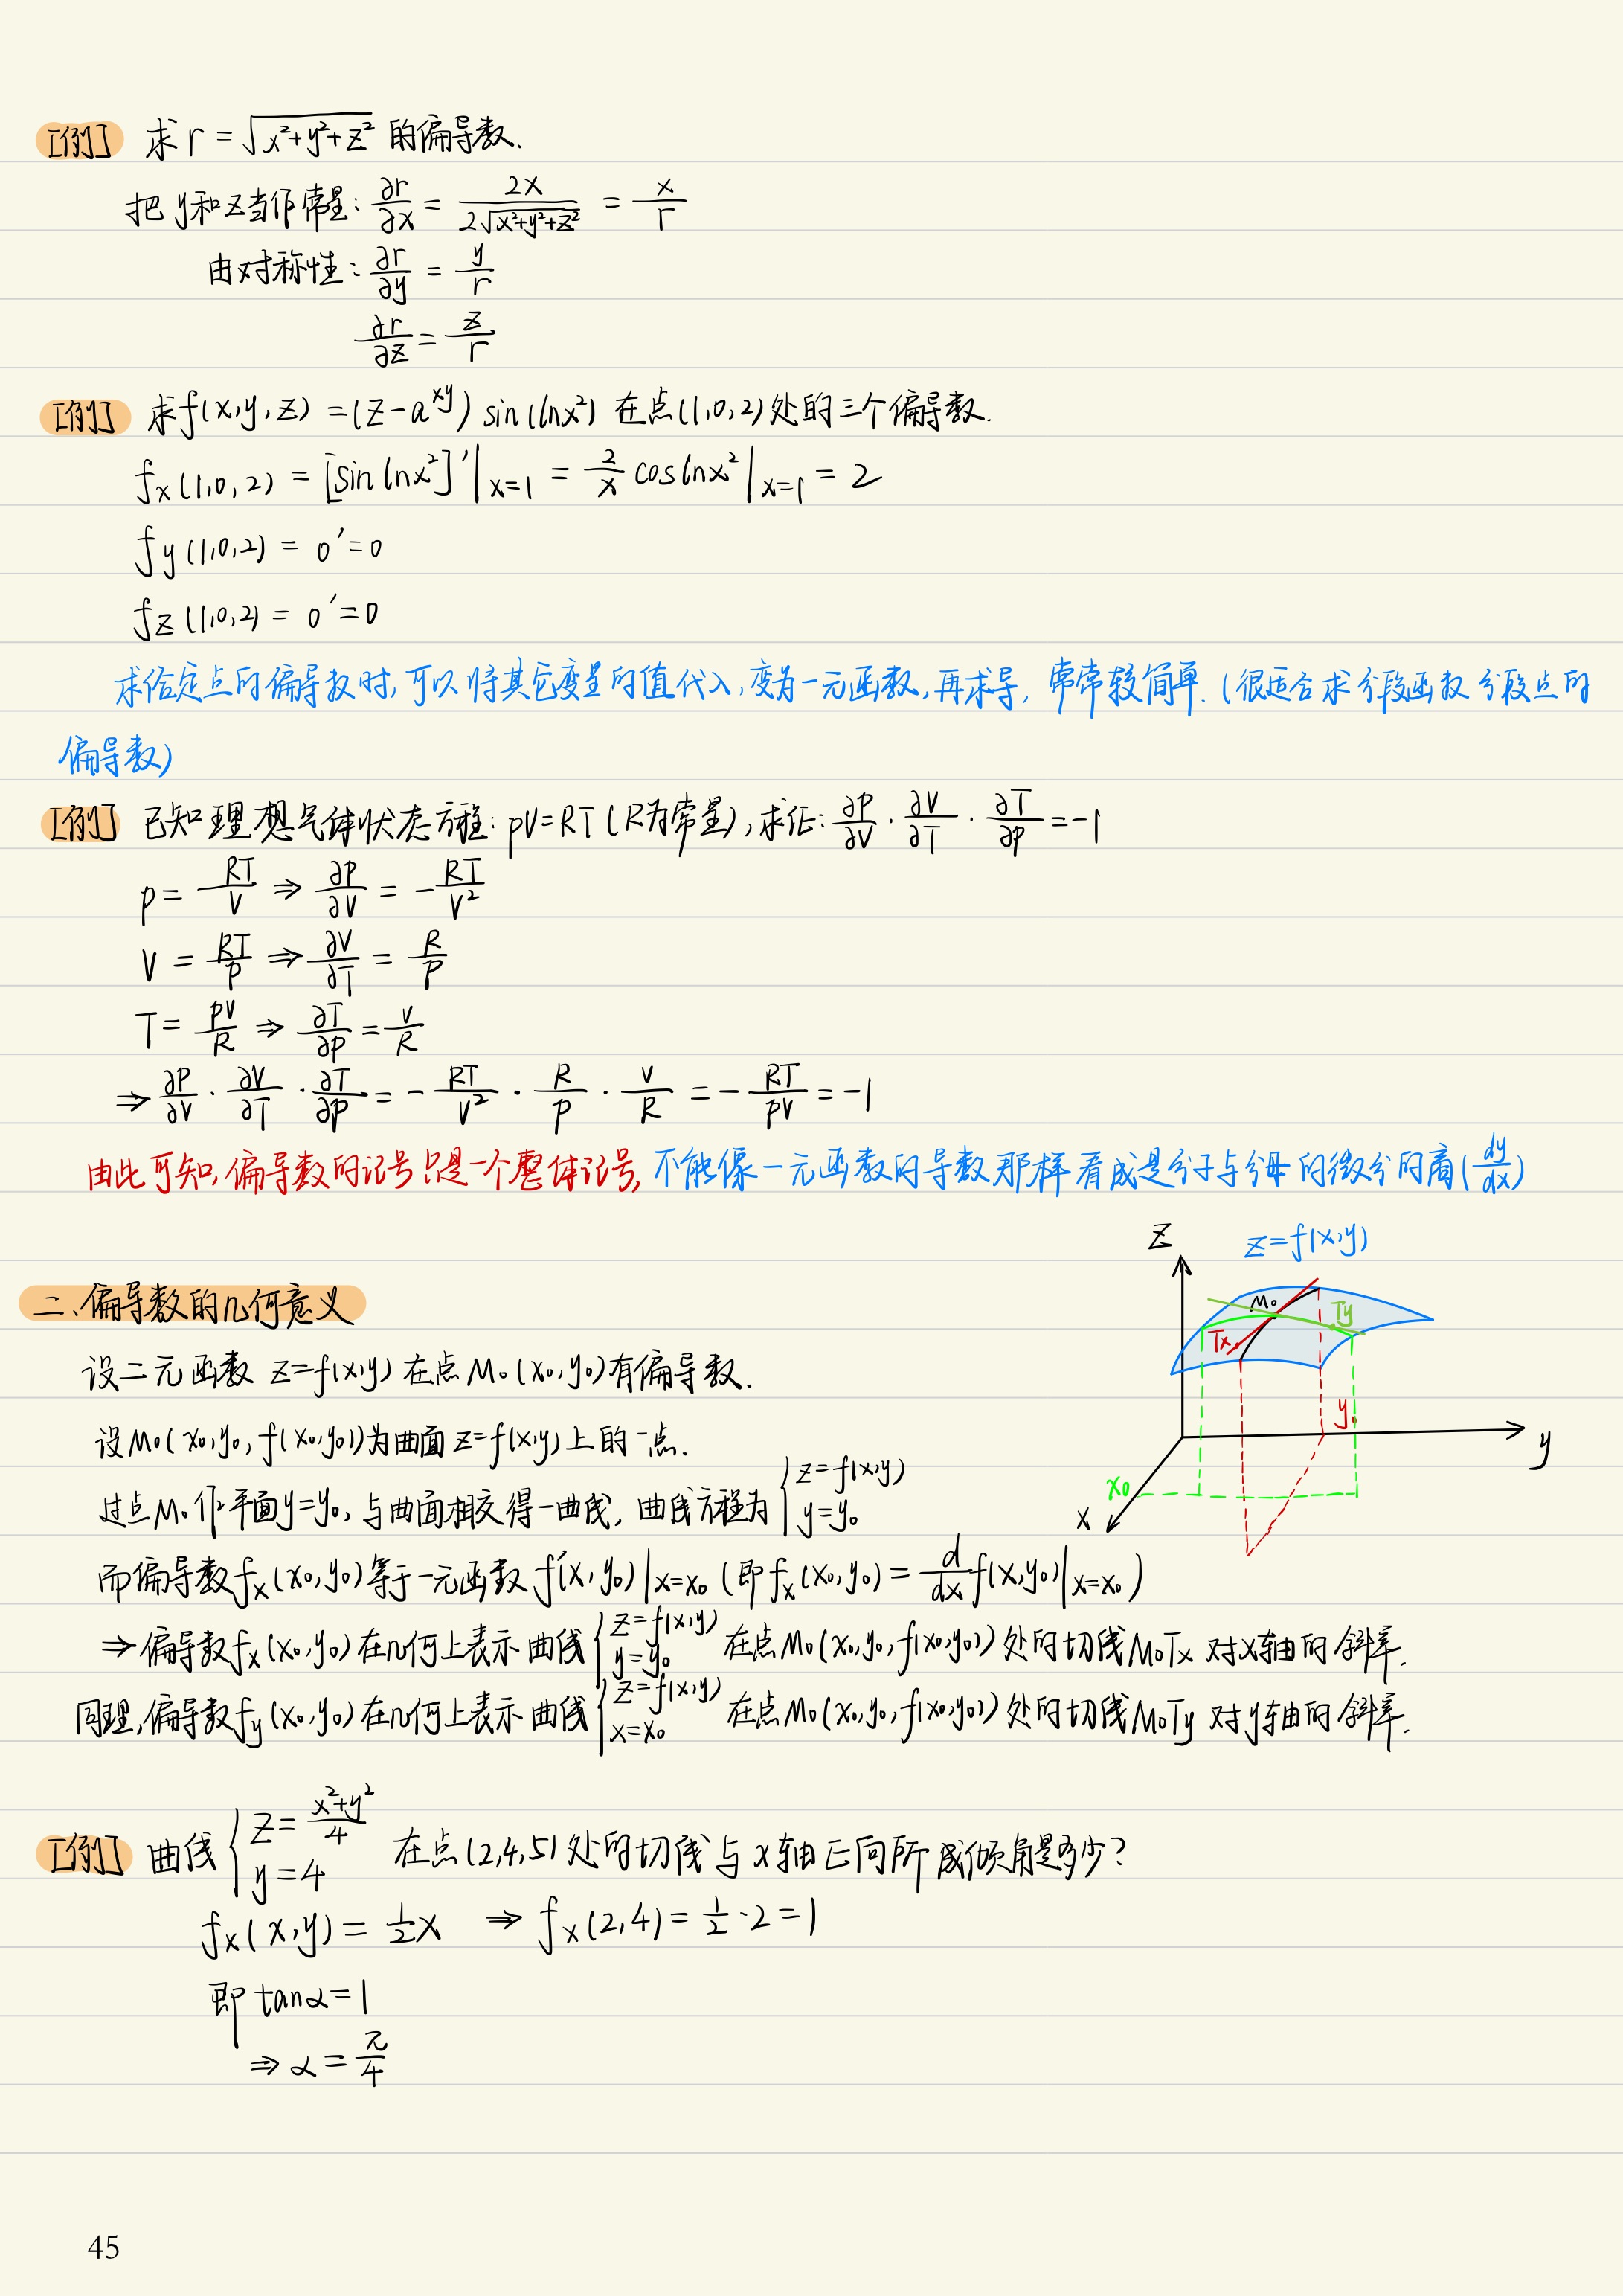 [例] 求 r = √(x²+y²+z²) 的偏导数.
把y和z当作常量: ∂r/∂x = 2x/(2√(x²+y²+z²)) = x/r
由对称性: ∂r/∂y = y/r
∂r/∂z = z/r
[例] 求f(x,y,z) = (z-a^(xy)) sin(lnx²) 在点(1,0,2)处的三个偏导数.
f_x(1,0,2) = [sin lnx²]'|_(x=1) = 2/x cos lnx²|_(x=1) = 2
f_y(1,0,2) = 0' = 0
f_z(1,0,2) = 0' = 0
求给定点的偏导数时,可以将其它变量的值代入,变为一元函数,再求导,常常较简单.(很适合求分段函数分段点的
偏导数)
[例] 已知理想气体状态方程: pV=RT (R为常量),求证: ∂p/∂V · ∂V/∂T · ∂T/∂p = -1
p = RT/V ⇒ ∂p/∂V = -RT/V²
V = RT/p ⇒ ∂V/∂T = R/p
T = pV/R ⇒ ∂T/∂p = V/R
⇒ ∂p/∂V · ∂V/∂T · ∂T/∂p = -RT/V² · R/p · V/R = -RT/pV = -1
由此可知,偏导数的记号只是一个整体记号,不能像一元函数的导数那样看成是分子与分母的微分的商(dy/dx)
z z=f(x,y)
M₀ Tx Ty
y₀
x₀ x y
二、偏导数的几何意义
设二元函数 z=f(x,y) 在点M₀(x₀,y₀)有偏导数.
设M₀(x₀,y₀,f(x₀,y₀))为曲面z=f(x,y)上的一点.
过点M₀作平面y=y₀,与曲面相交得一曲线,曲线方程为{z=f(x,y) y=y₀
而偏导数f_x(x₀,y₀)等于一元函数f'(x,y₀)|_(x=x₀) (即f_x(x₀,y₀) = d/dx f(x,y₀)|_(x=x₀))
⇒偏导数f_x(x₀,y₀)在几何上表示曲线{z=f(x,y) y=y₀ 在点M₀(x₀,y₀,f(x₀,y₀))处的切线M₀Tx 对x轴的斜率.
同理,偏导数f_y(x₀,y₀)在几何上表示曲线{z=f(x,y) x=x₀ 在点M₀(x₀,y₀,f(x₀,y₀))处的切线M₀Ty 对y轴的斜率.
[例] 曲线{z=(x²+y²)/4 y=4 在点(2,4,5)处的切线与x轴正向所成倾角是多少?
f_x(x,y) = ½x ⇒ f_x(2,4) = ½·2 = 1
即 tanα = 1
⇒ α = π/4
45